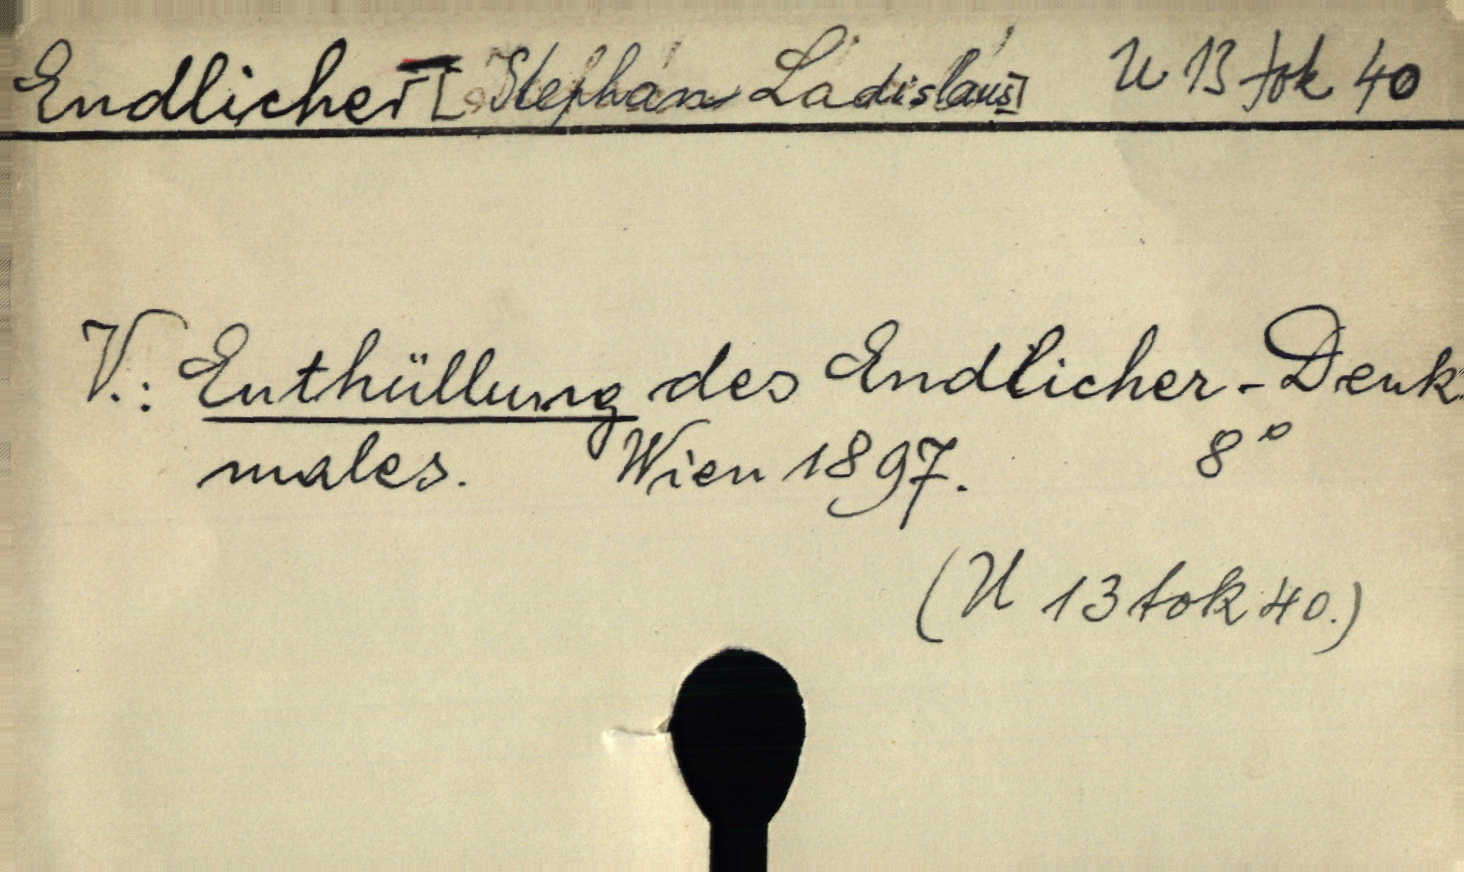 Endlicher [Stephan Ladislaus] U 13 tok 40
V.: Enthüllung des Endlicher-Denk-
males. Wien 1897. 8°
(U 13 tok 40.)